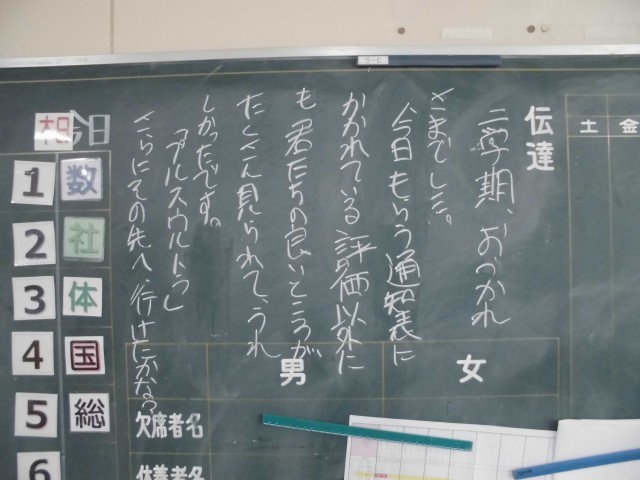 伝達
二学期、おつかれ
さまでした。
今日もらう通知表に
かかれている評価以外に
も君たちの良いところが
たくさん見られて、うれ
しかったです。
「プルスウルトラ」
さらにその先へ、行けたかな?
土
金
今日
1 数
2 社
3 体
4 国
5 総
6
女
男
欠席者名